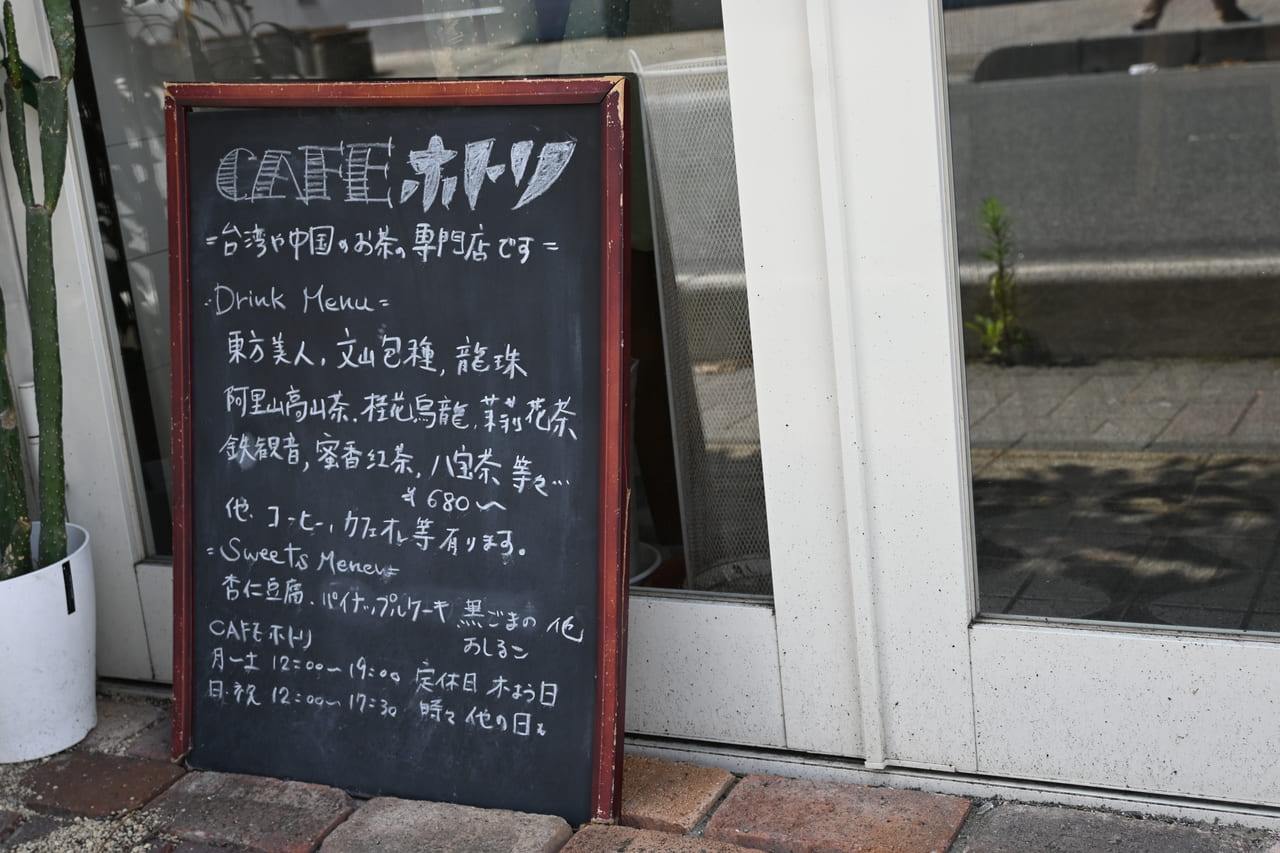 CAFE ホトリ
=台湾や中国のお茶の専門店です=
=Drink Menu=
東方美人, 文山包種, 龍珠
阿里山高山茶, 桂花烏龍, 茉莉花茶
鉄観音, 蜜香紅茶, 八宝茶 等々…
¥680〜
他. コーヒー, カフェオレ等有ります。
=Sweets Menu=
杏仁豆腐、パイナップルケーキ 黒ごまの 他
おしるこ
CAFEホトリ
月ー土 12:00〜19:00 定休日 木よう日
日・祝 12:00〜17:30 時々他の日も